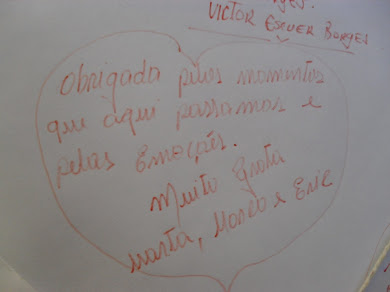 VICTOR ESQUER BORGES
Obrigada pelos momentos
que aqui passamos e
pelas Emoções.
Muito Grata
Marta, Marco e Eric